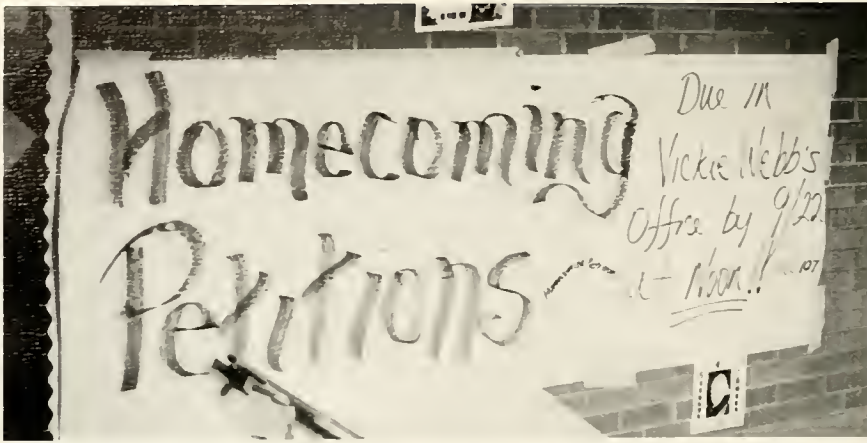 Homecoming
Petitions
Due in
Vickie Webb's
Office by 9/22
at noon!!